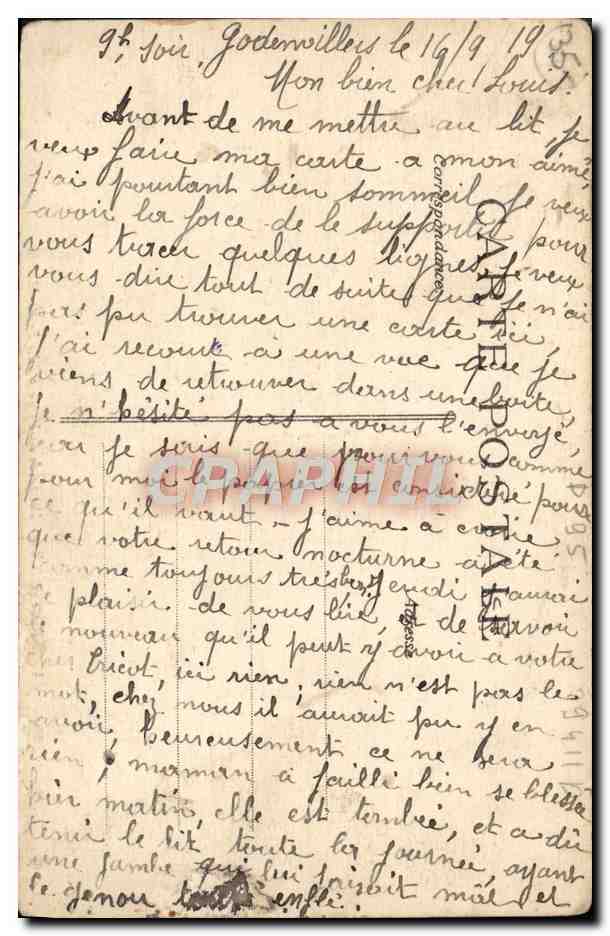 9h soir, Godenvillers le 16/9 19
Mon bien cher Louis!
Avant de me mettre au lit, Je
veux faire ma carte a mon aimé,
j'ai pourtant bien sommeil. Je veux
avoir la force de le supporter pour
vous tracer quelques lignes, Je veux
vous dire tout de suite que Je n'ai
pas pu trouver une carte ici,
J'ai recouru à une vue que je
viens de retrouver dans une boite,
Je n'hésite pas a vous l'envoyé,
car je sais que pour vous comme
pour moi le papier est considéré pour
ce qu'il vaut. J'aime à croire
que votre retour nocturne a été
comme toujours très bon, Jeudi J'aurai
le plaisir de vous lire, et de savoir
le nouveau qu'il peut y avoir a votre
cher Tricot, ici rien, rien n'est pas le
mot, chez nous il aurait pu y en
avoir, heureusement ce ne sera
rien, maman a failli bien se blessée
hier matin, elle est tombée, et a dû
tenir le lit toute la journée, ayant
une jambe qui lui faisait mal et
le genou tout enflé.
CARTE POSTALE
Correspondance
Adresse
CPAPHIL
35